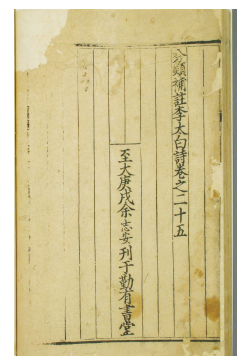 分類補註李太白詩卷之二十五
至大庚戌余志安刊于勤有書堂